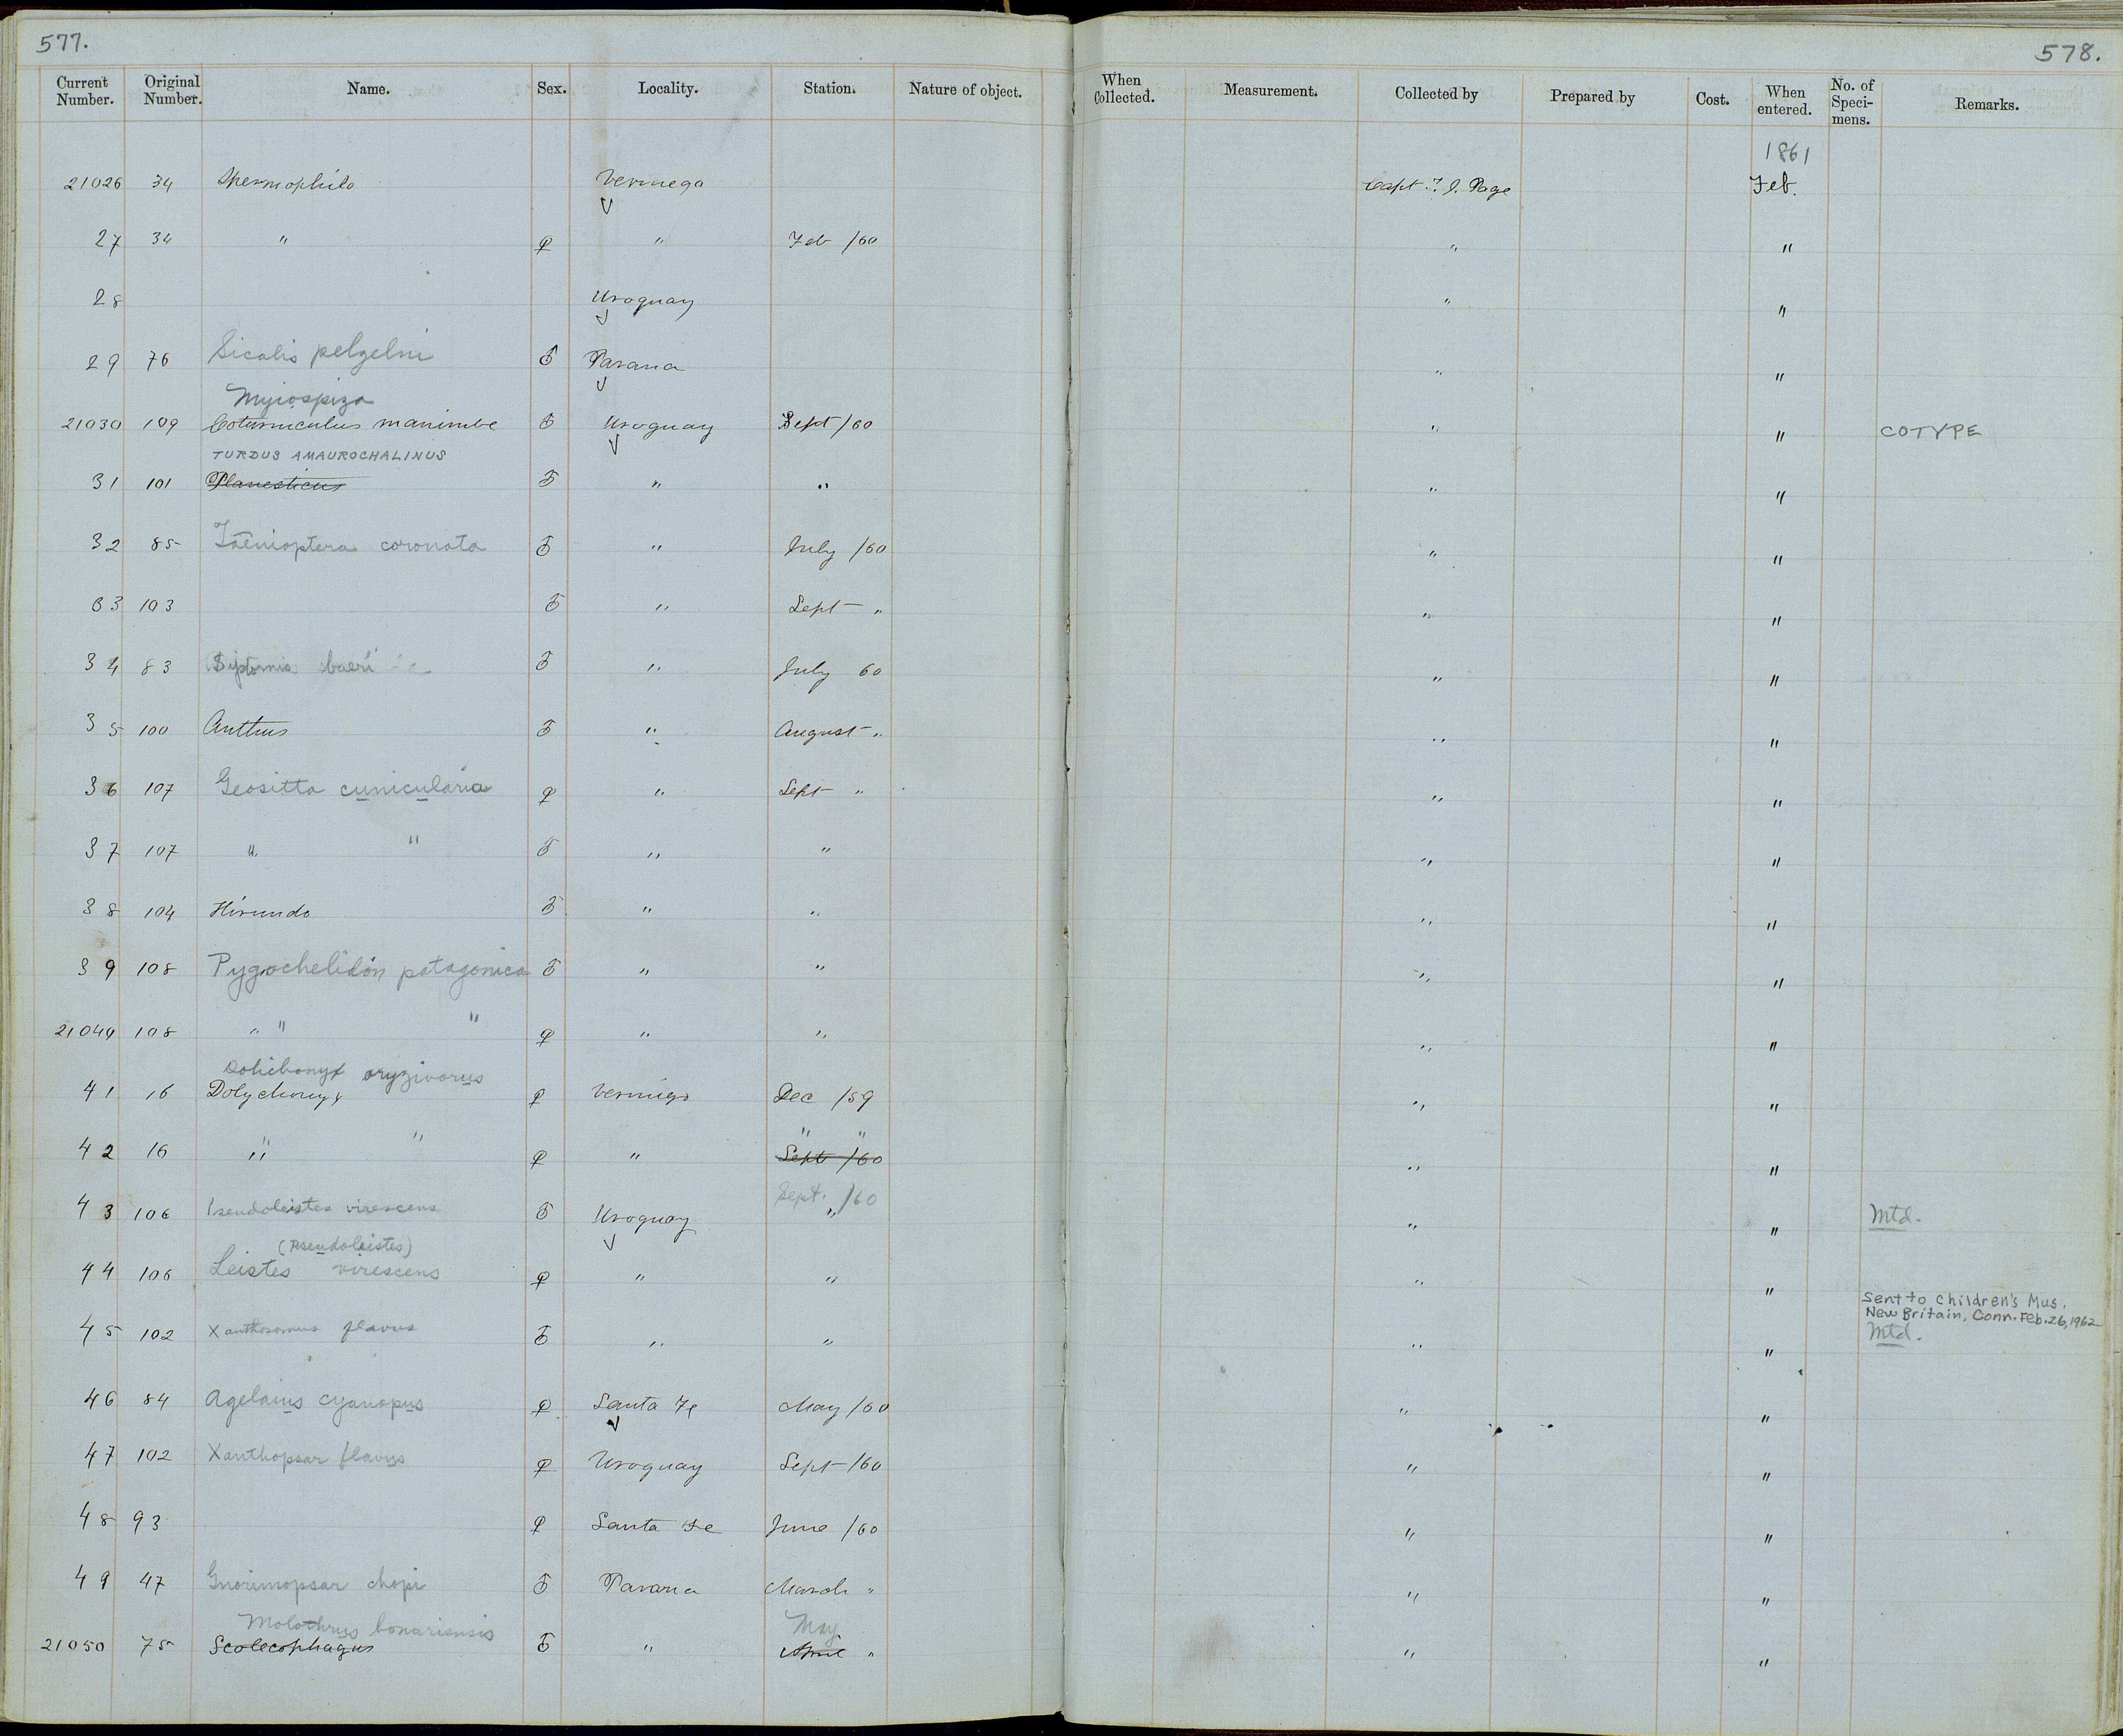 577.
578.
Current Number. Original Number. Name. Sex. Locality. Station. Nature of object. When Collected. Measurement. Collected by Prepared by Cost. When entered. No. of Speci-mens. Remarks.
1861
21026 34 Spermophila Vermego Capt. T. J. Page Feb.
V
27 34 " ♀ " Feb /60 " "
28 Uroguay " "
V
29 76 Sicalis pelzelni ♂ Parana " "
V
Myiospiza
21030 109 Coturniculus manimbe ♂ Uroguay Sept /60 " " COTYPE
V
TURDUS AMAUROCHALINUS
31 101 Planesticus ♂ " " " "
32 85 Taenioptera coronata ♂ " July /60 " "
33 103 ♂ " Sept " " "
34 83 baeri ♂ " July 60 " "
35 100 Anthus ♂ " August " " "
36 107 Geositta cunicularia ♀ " Sept " " "
37 107 " " ♂ " " " "
38 104 Hirundo ♂ " " " "
39 108 Pygochelidon patagonica ♂ " " " "
21040 108 " " " ♀ " " " "
Dolichonyx oryzivorus
41 16 Dolychonyx ♀ Vermigo Dec /59 " "
" "
42 16 " " ♀ " Sept /60 " "
Sept. /60
43 106 Pseudoleistes virescens ♂ Uroguay " " " Mtd.
V
(Pseudoleistes)
44 106 Leistes virescens ♀ " " " "
Sent to Children's Mus.
New Britain, Conn. Feb. 26, 1962
45 102 Xanthosomus flavus ♂ " " " " Mtd.
46 84 Agelaius cyanopus ♀ Santa Fe May /60 " "
V
47 102 Xanthopsar flavus ♀ Uroguay Sept /60 " "
48 93 ♀ Santa Fe June /60 " "
49 47 Gnorimopsar chopi ♂ Parana March " " "
Molothrus bonariensis May
21050 75 Scolecophagus ♂ " April " " "